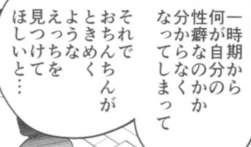 一時期から
何が自分の
性癖なのかか
分からなく
なってしまって
それで
おちんちんが
ときめく
ような
えっちを
見つけて
ほしいと…